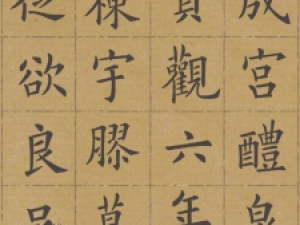 成宮醴泉
貞觀六年
棟宇膠葛
從欲良足